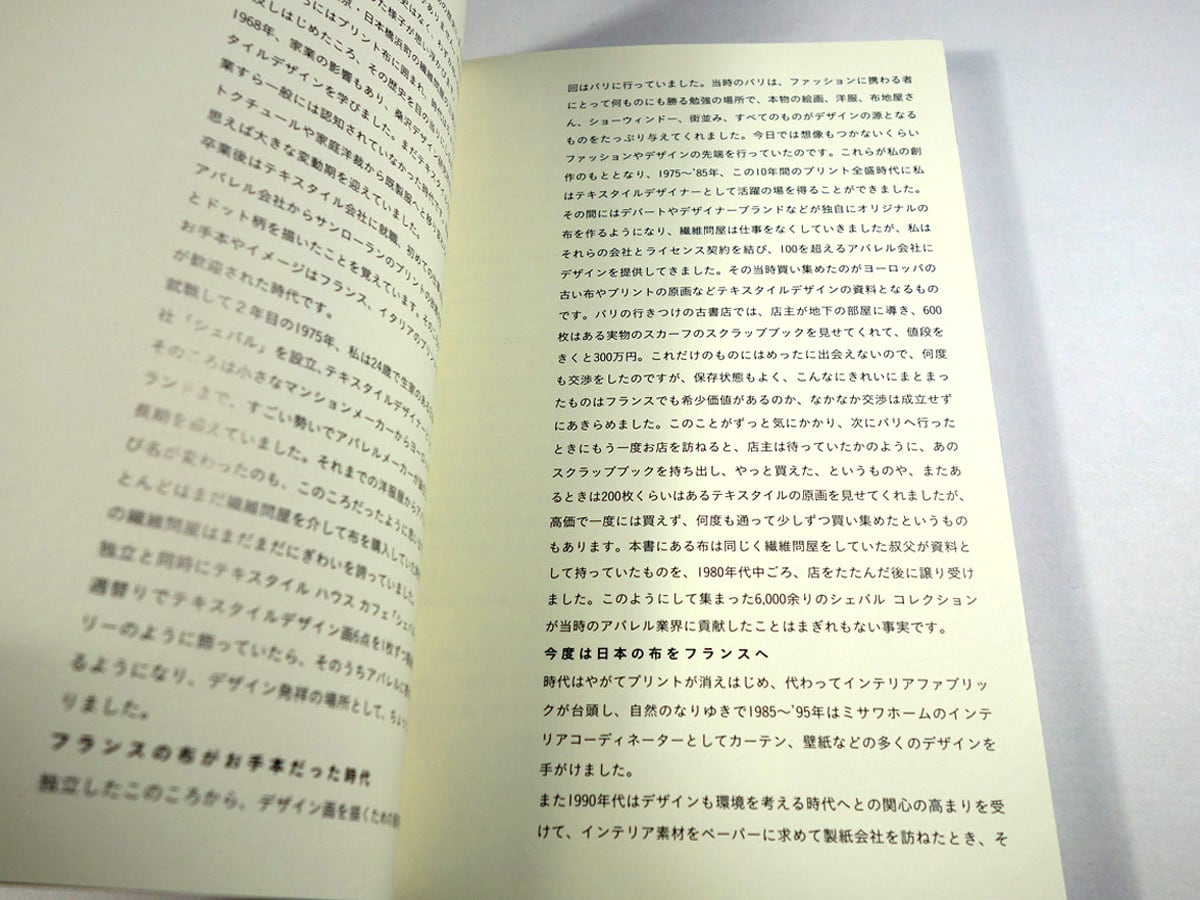 1968年、家業の影響もあり、桑沢デザイン
タイルデザインを学びました。まだテキスタ
業すら一般には認知されていなかった時代です。
トクチュールや家庭洋裁から既製服へと移り変
思えば大きな変動期を迎えていました。
卒業後はテキスタイル会社に就職、初めての
アパレル会社からサンローランのプリントの
とドット柄を描いたことを覚えています。その
お手本やイメージはフランス、イタリアのプリン
が歓迎された時代です。
就職して2年目の1975年、私は24歳で生家のある
社「シェバル」を設立、テキスタイルデザイナー
そのころは小さなマンションメーカーからヨーロッ
ランドまで、すごい勢いでアパレルメーカーが
長期を迎えていました。それまでの洋服屋からア
び名が変わったのも、このころだったように思い
とんどはまだ繊維問屋を介して布を購入していた
の繊維問屋はまだまだにぎわいを誇っていました。
独立と同時にテキスタイル ハウス カフェ「シェバ
週替りでテキスタイルデザイン画6点を1枚ずつ
リーのように飾っていたら、そのうちアパレルに
るようになり、デザイン発祥の場所として、ちょっ
りました。
フランスの布がお手本だった時代
独立したこのころから、デザイン画を描くための
回はパリに行っていました。当時のパリは、ファッションに携わる者
にとって何ものにも勝る勉強の場所で、本物の絵画、洋服、布地屋さ
ん、ショーウィンドー、街並み、すべてのものがデザインの源となる
ものをたっぷり与えてくれました。今日では想像もつかないくらい
ファッションやデザインの先端を行っていたのです。これらが私の創
作のもととなり、1975〜'85年、この10年間のプリント全盛時代に私
はテキスタイルデザイナーとして活躍の場を得ることができました。
その間にはデパートやデザイナーブランドなどが独自にオリジナルの
布を作るようになり、繊維問屋は仕事をなくしていきましたが、私は
それらの会社とライセンス契約を結び、100を超えるアパレル会社に
デザインを提供してきました。その当時買い集めたのがヨーロッパの
古い布やプリントの原画などテキスタイルデザインの資料となるもの
です。パリの行きつけの古書店では、店主が地下の部屋に導き、600
枚はある実物のスカーフのスクラップブックを見せてくれて、値段を
きくと300万円。これだけのものにはめったに出会えないので、何度
も交渉をしたのですが、保存状態もよく、こんなにきれいにまとまっ
たものはフランスでも希少価値があるのか、なかなか交渉は成立せず
にあきらめました。このことがずっと気にかかり、次にパリへ行った
ときにもう一度お店を訪ねると、店主は待っていたかのように、あの
スクラップブックを持ち出し、やっと買えた、というものや、またあ
るときは200枚くらいはあるテキスタイルの原画を見せてくれましたが、
高価で一度には買えず、何度も通って少しずつ買い集めたというもの
もあります。本書にある布は同じく繊維問屋をしていた叔父が資料と
して持っていたものを、1980年代中ごろ、店をたたんだ後に譲り受け
ました。このようにして集まった6,000余りのシェバル コレクション
が当時のアパレル業界に貢献したことはまぎれもない事実です。
今度は日本の布をフランスへ
時代はやがてプリントが消えはじめ、代わってインテリアファブリッ
クが台頭し、自然のなりゆきで1985〜'95年はミサワホームのインテ
リアコーディネーターとしてカーテン、壁紙などの多くのデザインを
手がけました。
また1990年代はデザインも環境を考える時代へとの関心の高まりを受
けて、インテリア素材をペーパーに求めて製紙会社を訪ねたとき、そ